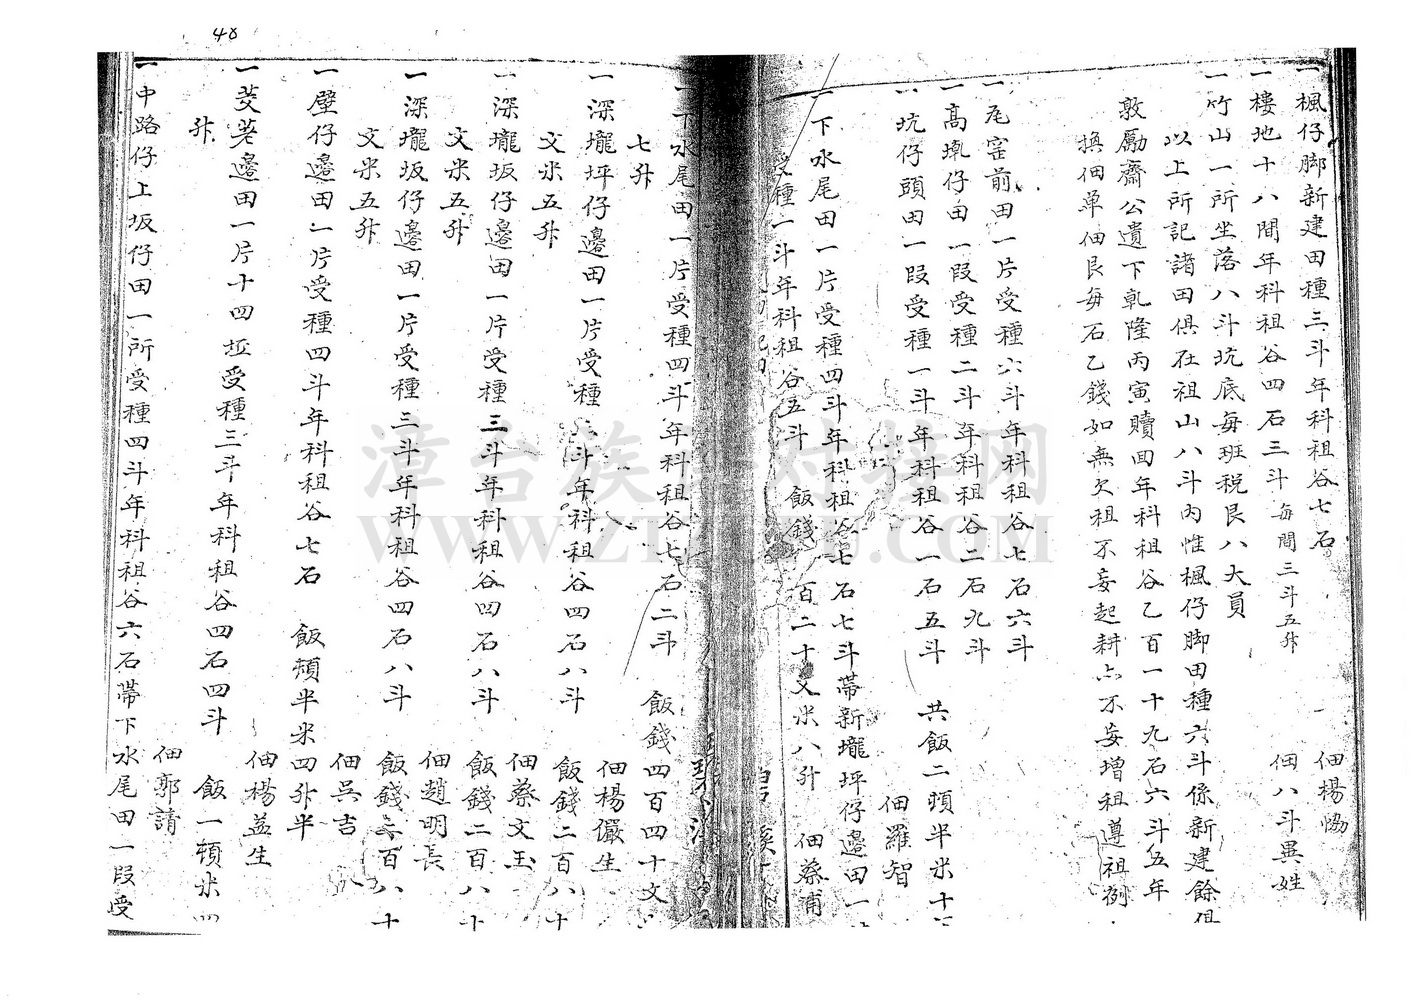 48
一楓仔脚新建田種三斗年科租谷七石 佃楊恊
一樓地十八間年科租谷四石三斗每間三斗五升 佃八斗異姓
一竹山一所坐落八斗坑底每班税艮八大員
以上所記諸田俱在祖山八斗内惟楓仔脚田種六斗係新建餘俱
敦勵齋公遺下乹隆丙寅贖回年科租谷乙百一十九石六斗五年
換佃單佃艮每石乙錢如無欠租不妄起耕亦不妄增租遵祖例
一瓦窑前田一片受種六斗年科租谷七石六斗
一高墘仔田一段受種二斗年科租谷二石九斗 共飯二頓半米十
一坑仔頭田一段受種一斗年科租谷一石五斗 佃羅智
一下水尾田一片受種四斗年科租谷七石七斗帶新壠坪仔邊田一
受種一斗年科租谷五斗 飯錢 百二十文米八升 佃蔡浦
一下水尾田一片受種四斗年科租谷七石二斗 飯錢四百四十文
七升 佃楊儼生
一深壠坪仔邊田一片受種三斗年科租谷四石八斗 飯錢二百八十
文米五升 佃蔡文玉
一深壠坂仔邊田一片受種三斗年科租谷四石八斗 飯錢二百八十
文米五升 佃趙明長
一深壠坂仔邊田一片受種三斗年科租谷四石八斗 飯錢二百八十
文米五升 佃吳吉
一壁仔邊田一片受種四斗年科租谷七石 飯頓半米四升半
佃楊益生
一茭荖邊田一片十四坵受種三斗年科租谷四石四斗 飯一頓米四
升 佃郭請
一中路仔上坂仔田一所受種四斗年科租谷六石帶下水尾田一段受
漳台族谱对接网
WWW.ZTZUPU.COM